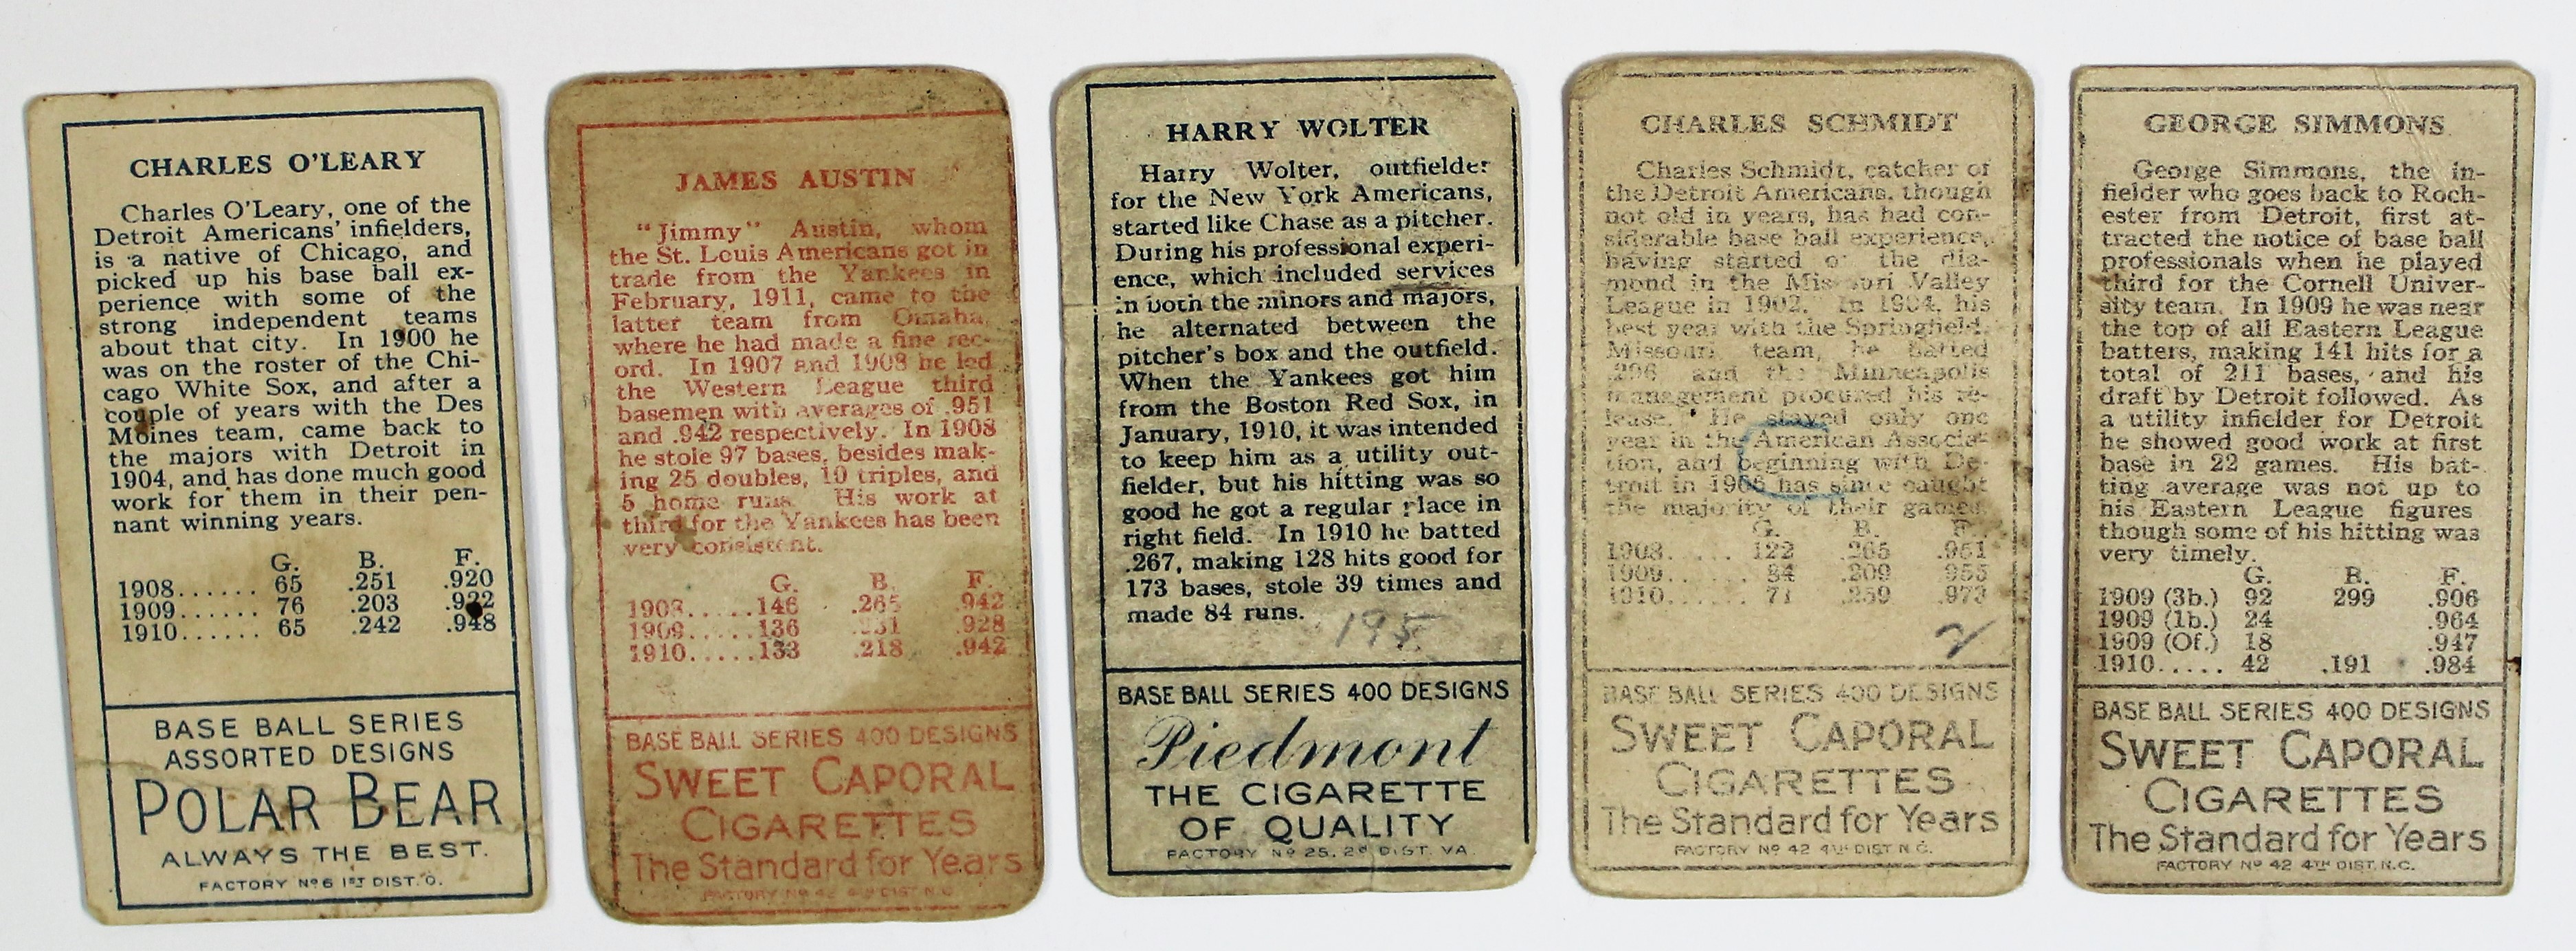 CHARLES O'LEARY
Charles O'Leary, one of the
Detroit Americans' infielders,
is a native of Chicago, and
picked up his base ball ex-
perience with some of the
strong independent teams
about that city. In 1900 he
was on the roster of the Chi-
cago White Sox, and after a
couple of years with the Des
Moines team, came back to
the majors with Detroit in
1904, and has done much good
work for them in their pen-
nant winning years.
G. B. F.
1908...... 65 .251 .920
1909...... 76 .203 .922
1910...... 65 .242 .948
BASE BALL SERIES
ASSORTED DESIGNS
POLAR BEAR
ALWAYS THE BEST.
FACTORY Nº 6 1ST DIST. O.
JAMES AUSTIN
"Jimmy" Austin, whom
the St. Louis Americans got in
trade from the Yankees in
February, 1911, came to the
latter team from Omaha,
where he had made a fine rec-
ord. In 1907 and 1908 he led
the Western League third
basemen with averages of .951
and .942 respectively. In 1908
he stole 97 bases, besides mak-
ing 25 doubles, 10 triples, and
5 home runs. His work at
third for the Yankees has been
very consistent.
G. B. F.
1908.....146 .265 .942
1909.....136 .928
1910.....133 .218 .942
BASE BALL SERIES 400 DESIGNS
SWEET CAPORAL
CIGARETTES
The Standard for Years
FACTORY Nº 42 4TH DIST. N.C.
HARRY WOLTER
Harry Wolter, outfielder
for the New York Americans,
started like Chase as a pitcher.
During his professional experi-
ence, which included services
in both the minors and majors,
he alternated between the
pitcher's box and the outfield.
When the Yankees got him
from the Boston Red Sox, in
January, 1910, it was intended
to keep him as a utility out-
fielder, but his hitting was so
good he got a regular place in
right field. In 1910 he batted
.267, making 128 hits good for
173 bases, stole 39 times and
made 84 runs.
195
BASE BALL SERIES 400 DESIGNS
Piedmont
THE CIGARETTE
OF QUALITY
FACTORY Nº 25, 2D DIST. VA.
CHARLES SCHMIDT
Charles Schmidt, catcher of
the Detroit Americans, though
not old in years, has had con-
siderable base ball experience,
having started on the dia-
mond in the Missouri Valley
League in 1902. In 1904, his
best year with the Springfield,
Missouri, team, he batted
.296 and the Minneapolis
management procured his re-
lease. He stayed only one
year in the American Associa-
tion, and beginning with De-
troit in 1906 has since caught
the majority of their games.
G. B. F.
1908...... 122 .265 .951
1909...... 84 .209 .955
1910...... 71 .259 .973
2
BASE BALL SERIES 400 DESIGNS
SWEET CAPORAL
CIGARETTES
The Standard for Years
FACTORY Nº 42 4TH DIST. N.C.
GEORGE SIMMONS
George Simmons, the in-
fielder who goes back to Roch-
ester from Detroit, first at-
tracted the notice of base ball
professionals when he played
third for the Cornell Univer-
sity team. In 1909 he was near
the top of all Eastern League
batters, making 141 hits for a
total of 211 bases, and his
draft by Detroit followed. As
a utility infielder for Detroit
he showed good work at first
base in 22 games. His bat-
ting average was not up to
his Eastern League figures
though some of his hitting was
very timely.
G. B. F.
1909 (3b.) 92 299 .906
1909 (1b.) 24 .964
1909 (Of.) 18 .947
1910..... 42 .191 .984
BASE BALL SERIES 400 DESIGNS
SWEET CAPORAL
CIGARETTES
The Standard for Years
FACTORY Nº 42 4TH DIST. N.C.